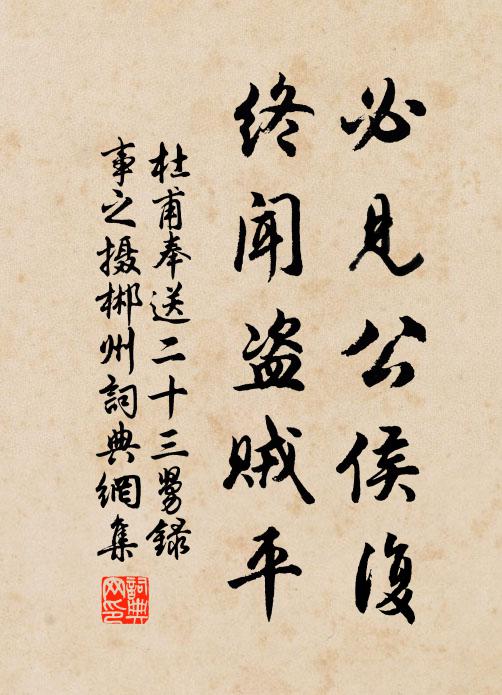 必见公侯復
终闻盗贼平
杜甫奉送二十三舅録
事之摄郴州詞典網集
詞典网印